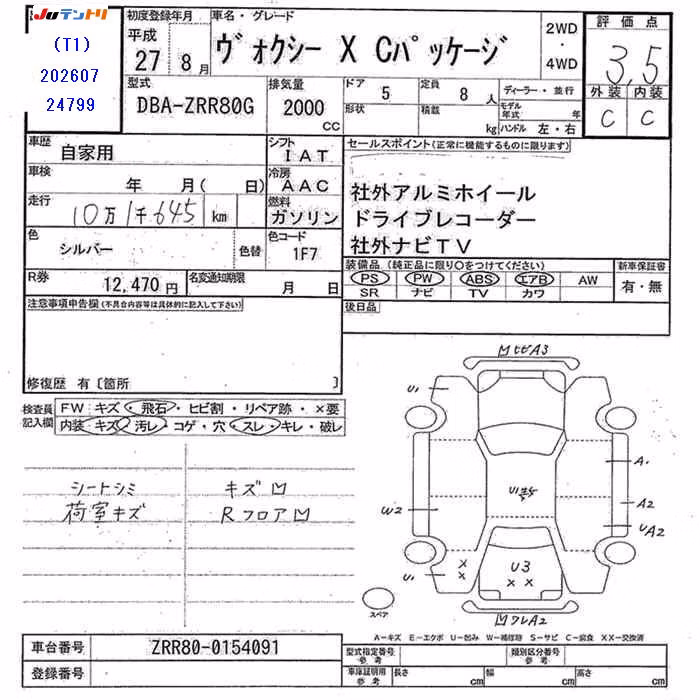 Juテントリ
(T1)
202607
24799
初度登録年月
平成
27年 8月
車名・グレード
ヴォクシー X Cパッケージ
2WD
・
4WD
評価点
3.5
外装 内装
C C
型式
DBA-ZRR80G
排気量
2000
CC
ドア
5
形状
定員
8人
積載
kg
ディーラー・並行
モデル
年式 年
ハンドル 左・右
車歴
自家用
シフト
IAT
車検
年 月( 日)
冷房
AAC
走行
10万1千645 km
燃料
ガソリン
色
シルバー
色替
色コード
1F7
R券
12,470円
名変通知期限
月 日
セールスポイント(正常に機能するものに限ります)
社外アルミホイール
ドライブレコーダー
社外ナビTV
装備品(純正品に限り○をつけてください)
PS PW ABS エアB AW
SR ナビ TV カワ
新車保証書
有・無
後日品
注意事項申告欄(不具合内容等は具体的に記入して下さい)
修復歴 有〔箇所 〕
検査員
記入欄
FW キズ・飛石・ヒビ割・リペア跡・×要
内装 キズ・汚レ・コゲ・穴・スレ・キレ・破レ
シートシミ
荷室キズ
キズ凹
Rフロア凹
凹ヒビA3
U1
A1
A2
UA2
W2
U1
U1
U3
××
×
×
凹ワレA2
スペア
A−キズ E−エクボ U−凹み W−補修跡 S−サビ C−腐食 XX−交換済
車台番号
ZRR80-0154091
登録番号
型式指定番号
参考
類別区分番号
参考
車庫証明用
参考
長さ cm
幅 cm
高さ cm